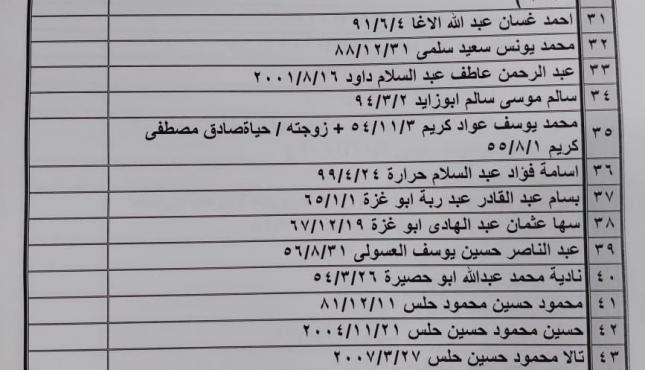 ٣١ احمد غسان عبد الله الاغا ٩١/٦/٤
٣٢ محمد يونس سعيد سلمى ٨٨/١٢/٣١
٣٣ عبد الرحمن عاطف عبد السلام داود ٢٠٠١/٨/١٦
٣٤ سالم موسى سالم ابوزايد ٩٤/٣/٢
٣٥ محمد يوسف عواد كريم ٥٤/١١/٣ + زوجته / حياةصادق مصطفى
كريم ٥٥/٨/١
٣٦ اسامة فؤاد عبد السلام حرارة ٩٩/٤/٢٤
٣٧ بسام عبد القادر عبد ربة ابو غزة ٦٥/١/١
٣٨ سها عثمان عبد الهادى ابو غزة ٦٧/١٢/١٩
٣٩ عبد الناصر حسين يوسف العسولى ٥٦/٨/٣١
٤٠ نادية محمد عبدالله ابو حصيرة ٥٤/٣/٢٦
٤١ محمود حسين محمود حلس ٨١/١٢/١١
٤٢ حسين محمود حسين حلس ٢٠٠٤/١١/٢١
٤٣ تالا محمود حسين حلس ٢٠٠٧/٣/٢٧